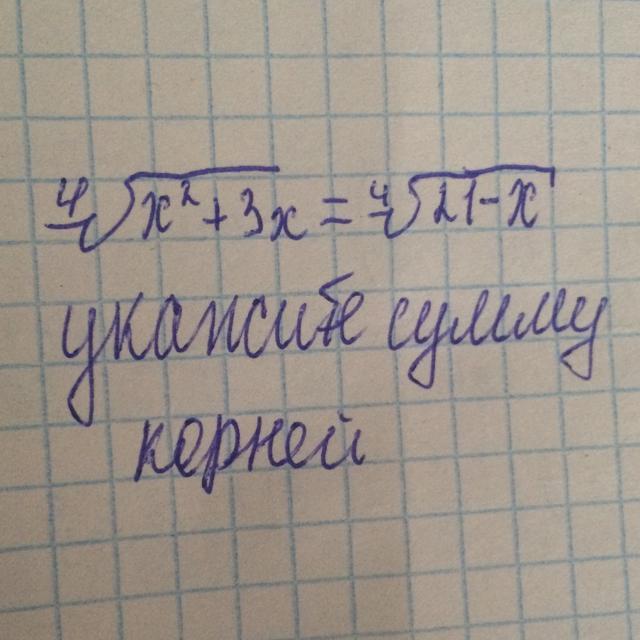 ⁴√x²+3x = ⁴√21-x
укажите сумму
корней